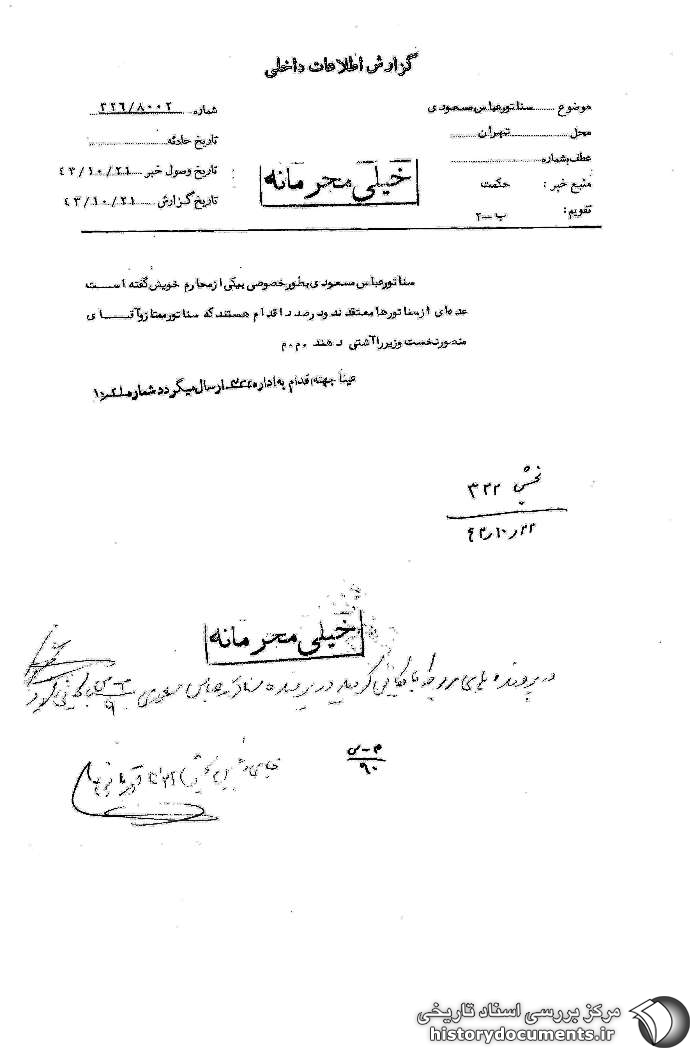 گزارش اطلاعات داخلی
موضوع سناتور عباس مسعودی
شماره ۳۲۶/۸۰۰۲
محل تهران
تاریخ حادثه
عطف بشماره
تاریخ وصول خبر ۴۳/۱۰/۲۱
منبع خبر : حکمت
تاریخ گزارش ۴۳/۱۰/۲۱
تقویم: ب-۲
خیلی محرمانه
سناتور عباس مسعودی بطور خصوصی بیکی از محارم خویش گفته است
عده‌ای از سناتورها معتقدند و درصدد اقدام هستند که سناتور ممتاز و آقای
منصور نخست وزیر را آشتی دهند م۰م
عیناً جهت اقدام به اداره ۳۲۲ ارسال میگردد شماره
بخش ۳۲۲
۴۳/۱۰/۲۲
خیلی محرمانه
در پرونده های مربوطه بایگانی گردید در پرونده سناتور عباس مسعودی م-س بایگانی شود
م-س
۹۰
مرکز بررسی اسناد تاریخی
historydocuments.ir